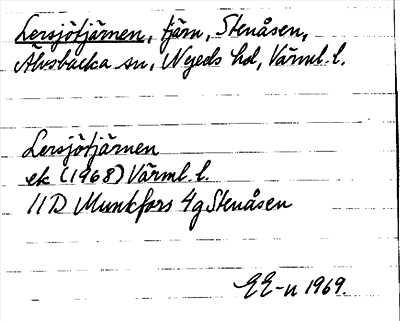 Lersjötjärnen, tjärn, Stenåsen,
Älvsbacka sn, Nyeds hd, Värml. l.
Lersjötjärnen
ek (1968) Värml. l.
11D Munkfors 4g Stenåsen
EE-n 1969